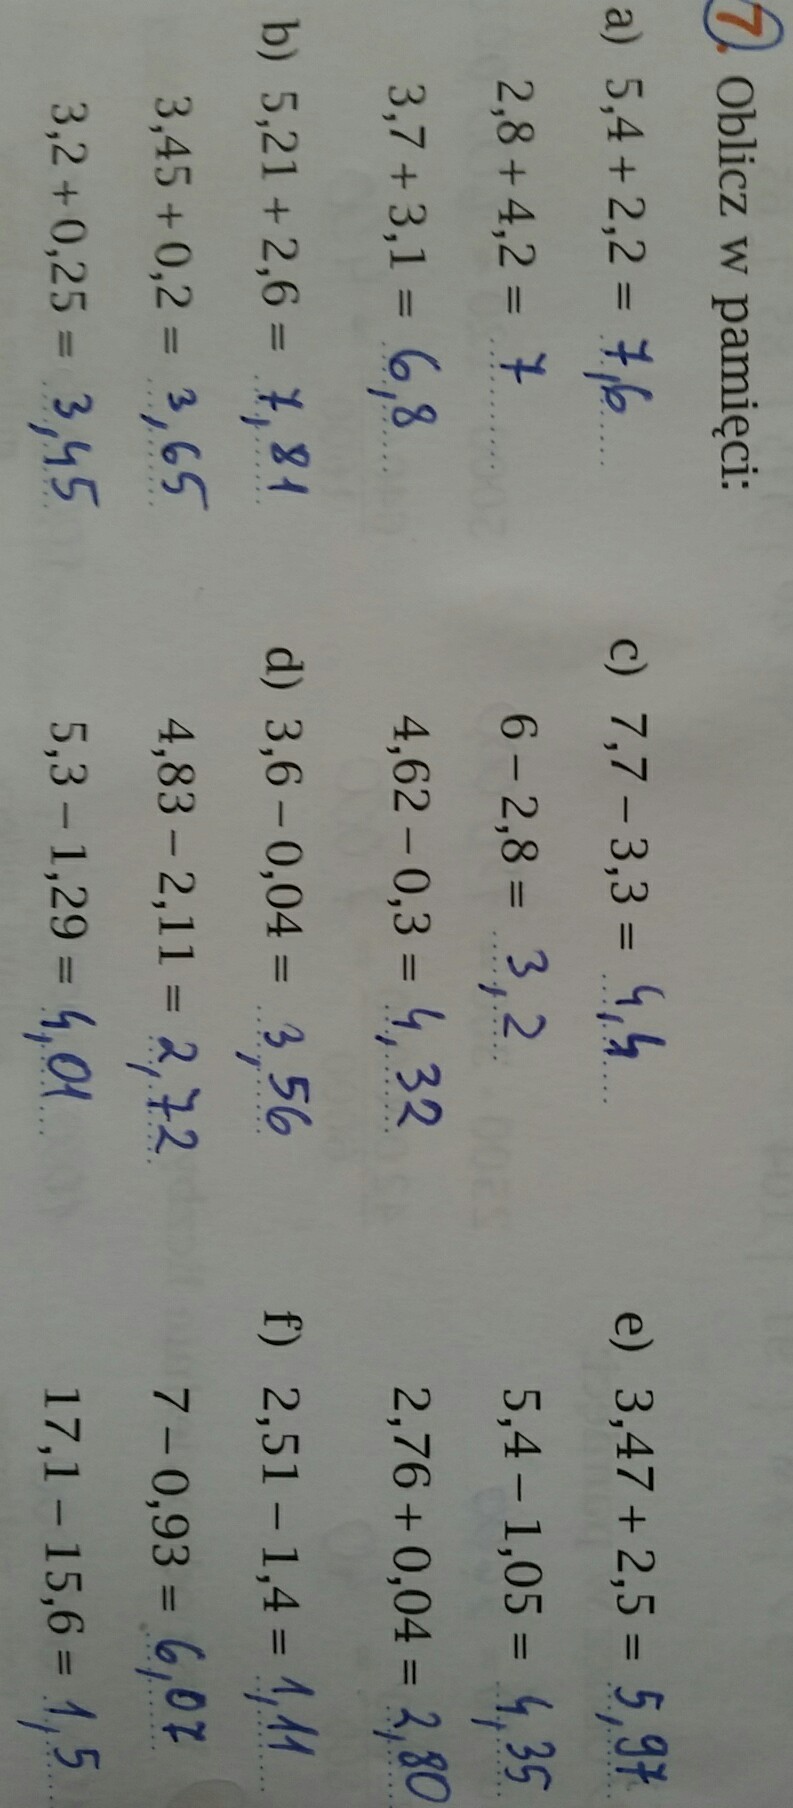 7. Oblicz w pamięci:
a) 5,4 + 2,2 = 7,6
2,8 + 4,2 = 7
3,7 + 3,1 = 6,8
b) 5,21 + 2,6 = 7,81
3,45 + 0,2 = 3,65
3,2 + 0,25 = 3,45
c) 7,7 – 3,3 = 4,4
6 – 2,8 = 3,2
4,62 – 0,3 = 4,32
d) 3,6 – 0,04 = 3,56
4,83 – 2,11 = 2,72
5,3 – 1,29 = 4,01
e) 3,47 + 2,5 = 5,97
5,4 – 1,05 = 4,35
2,76 + 0,04 = 2,80
f) 2,51 – 1,4 = 1,11
7 – 0,93 = 6,07
17,1 – 15,6 = 1,5